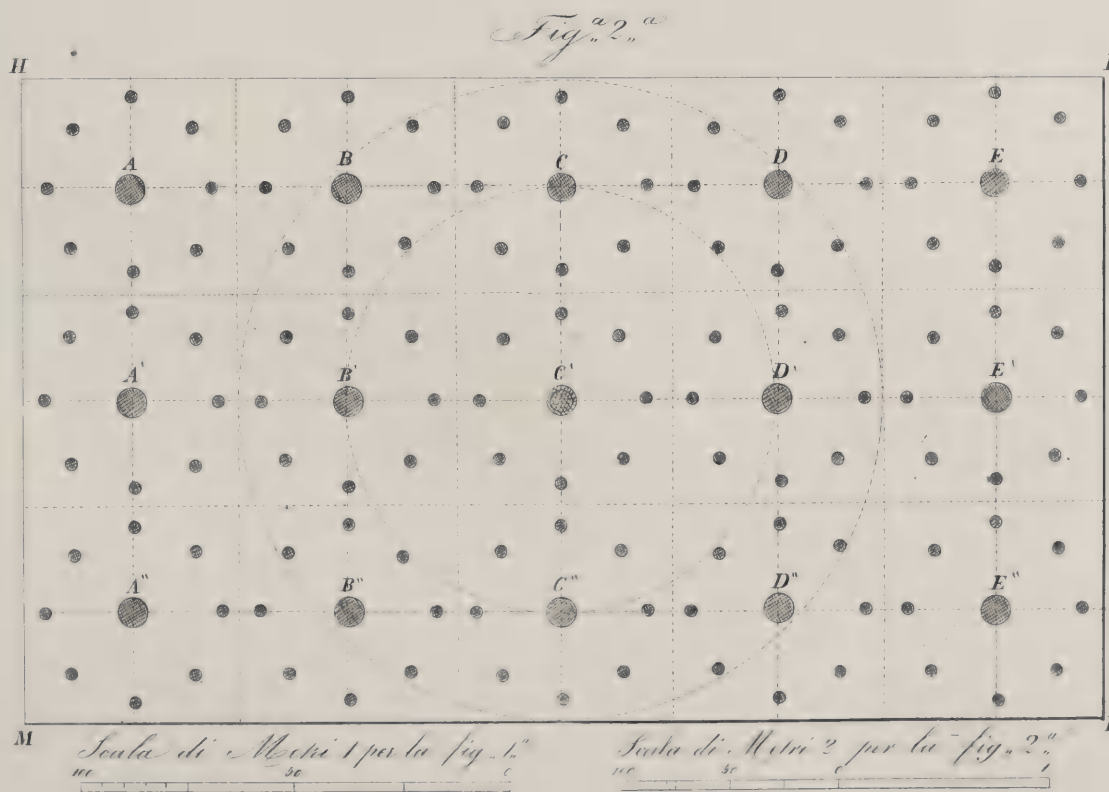 Fig.ª 2.ª
H
A B C D E
A' B' C' D' E'
A" B" C" D" E"
M
Scala di Metri 1 per la fig. 1.ª
Scala di Metri 2 per la fig. 2.ª
100 50 0
100 50 0 1